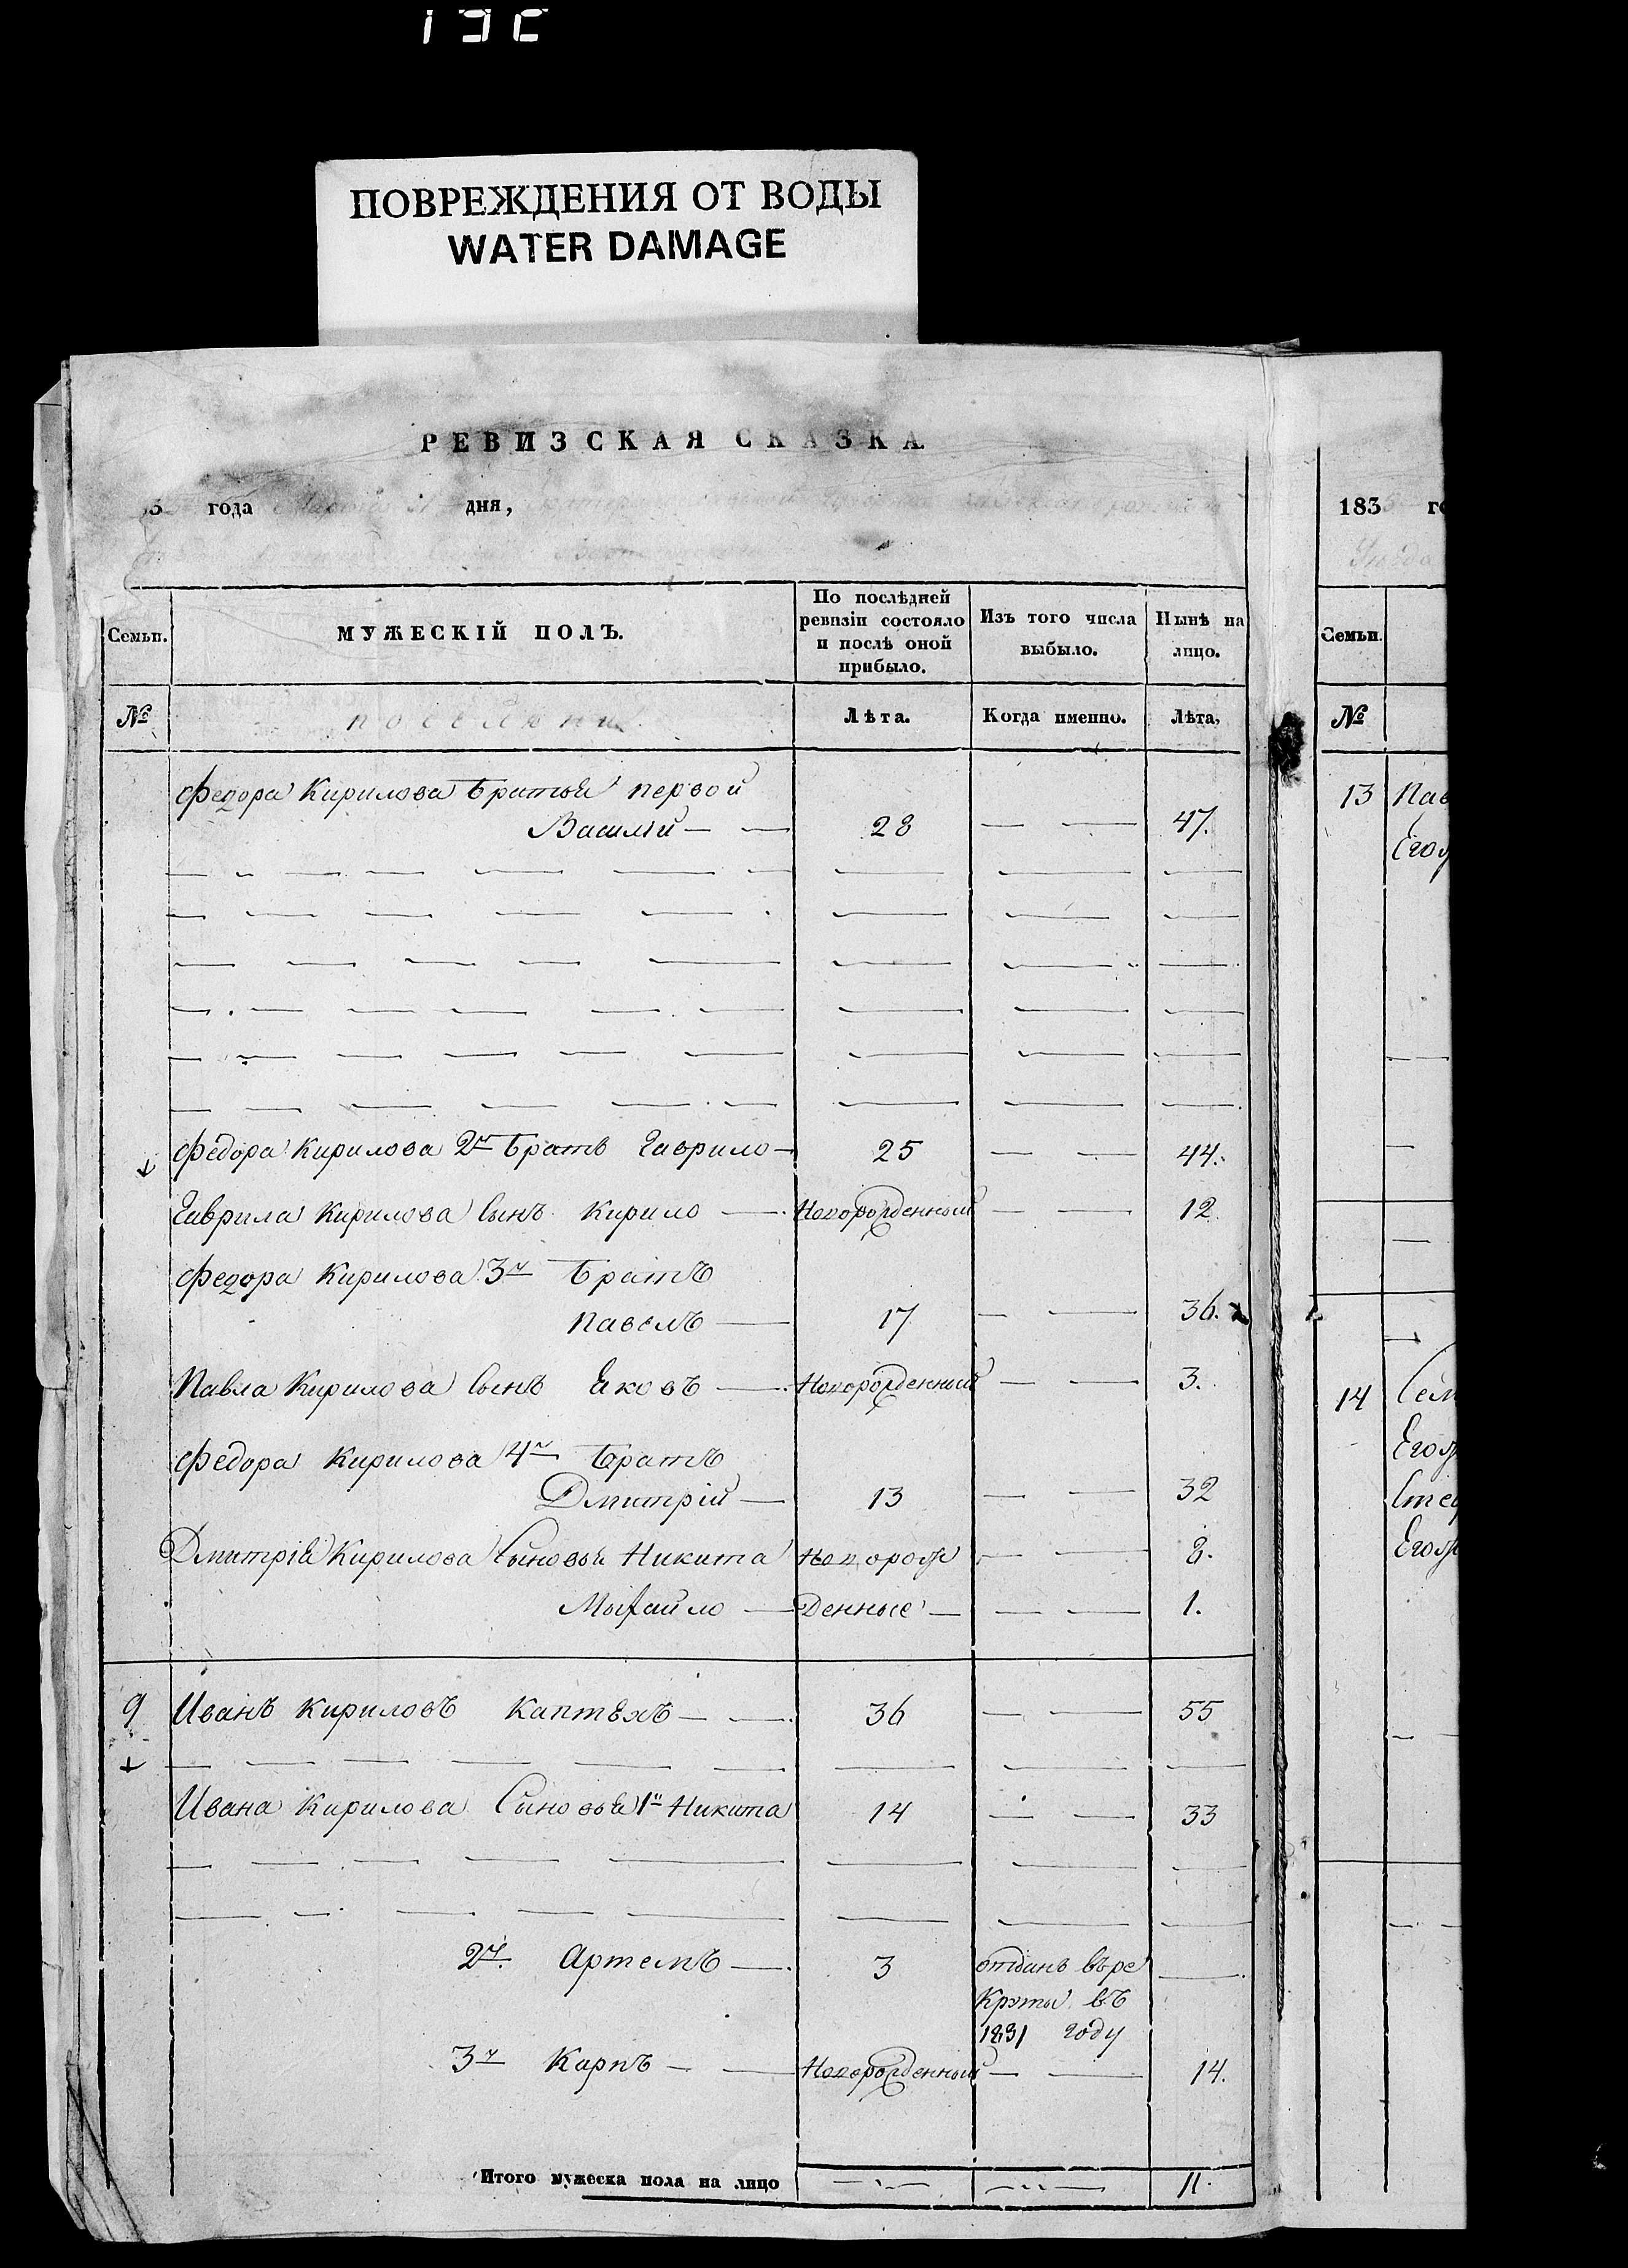 ПОВРЕЖДЕНИЯ ОТ ВОДЫ
WATER DAMAGE
РЕВИЗСКАЯ СКАЗКА
года Марта 31 дня,
183 го
Семьи. МУЖЕСКІЙ ПОЛЪ. По послѣдней ревизіи состояло и послѣ оной прибыло. Изъ того числа выбыло. Нынѣ на лицо.
Семьи.
№ поселяни Лѣта. Когда именно. Лѣта,
№
Федора Кирилова братья первой
Василій — — 28 — — 47.
13 Пав
Егоχ
Федора Кирилова 2й братъ Гаврило — 25 — — 44.
Гаврила Кирилова Сынъ Кирило — Новорожденный — — 12
Федора Кирилова 3й братъ
Павелъ — 17 — — 36.
Павла Кирилова Сынъ Яковъ — Новорожденный — — 3.
14 Сем
Федора Кирилова 4й братъ
Дмитрій — 13 — — 32
Дмитрія Кирилова Сыновья Никита Новорож — — 8.
Мыхайло — денные — — — 1.
9 Иванъ Кириловъ Каптяхъ — — 36 — — 55
Ивана Кирилова Сыновья 1й Никита 14 — — 33
2й Артемъ — 3 отданъ въ ре —
круты въ
1831 году
3й Карпъ — — Новорожденный — — 14.
Итого мужеска пола на лицо — — 11.